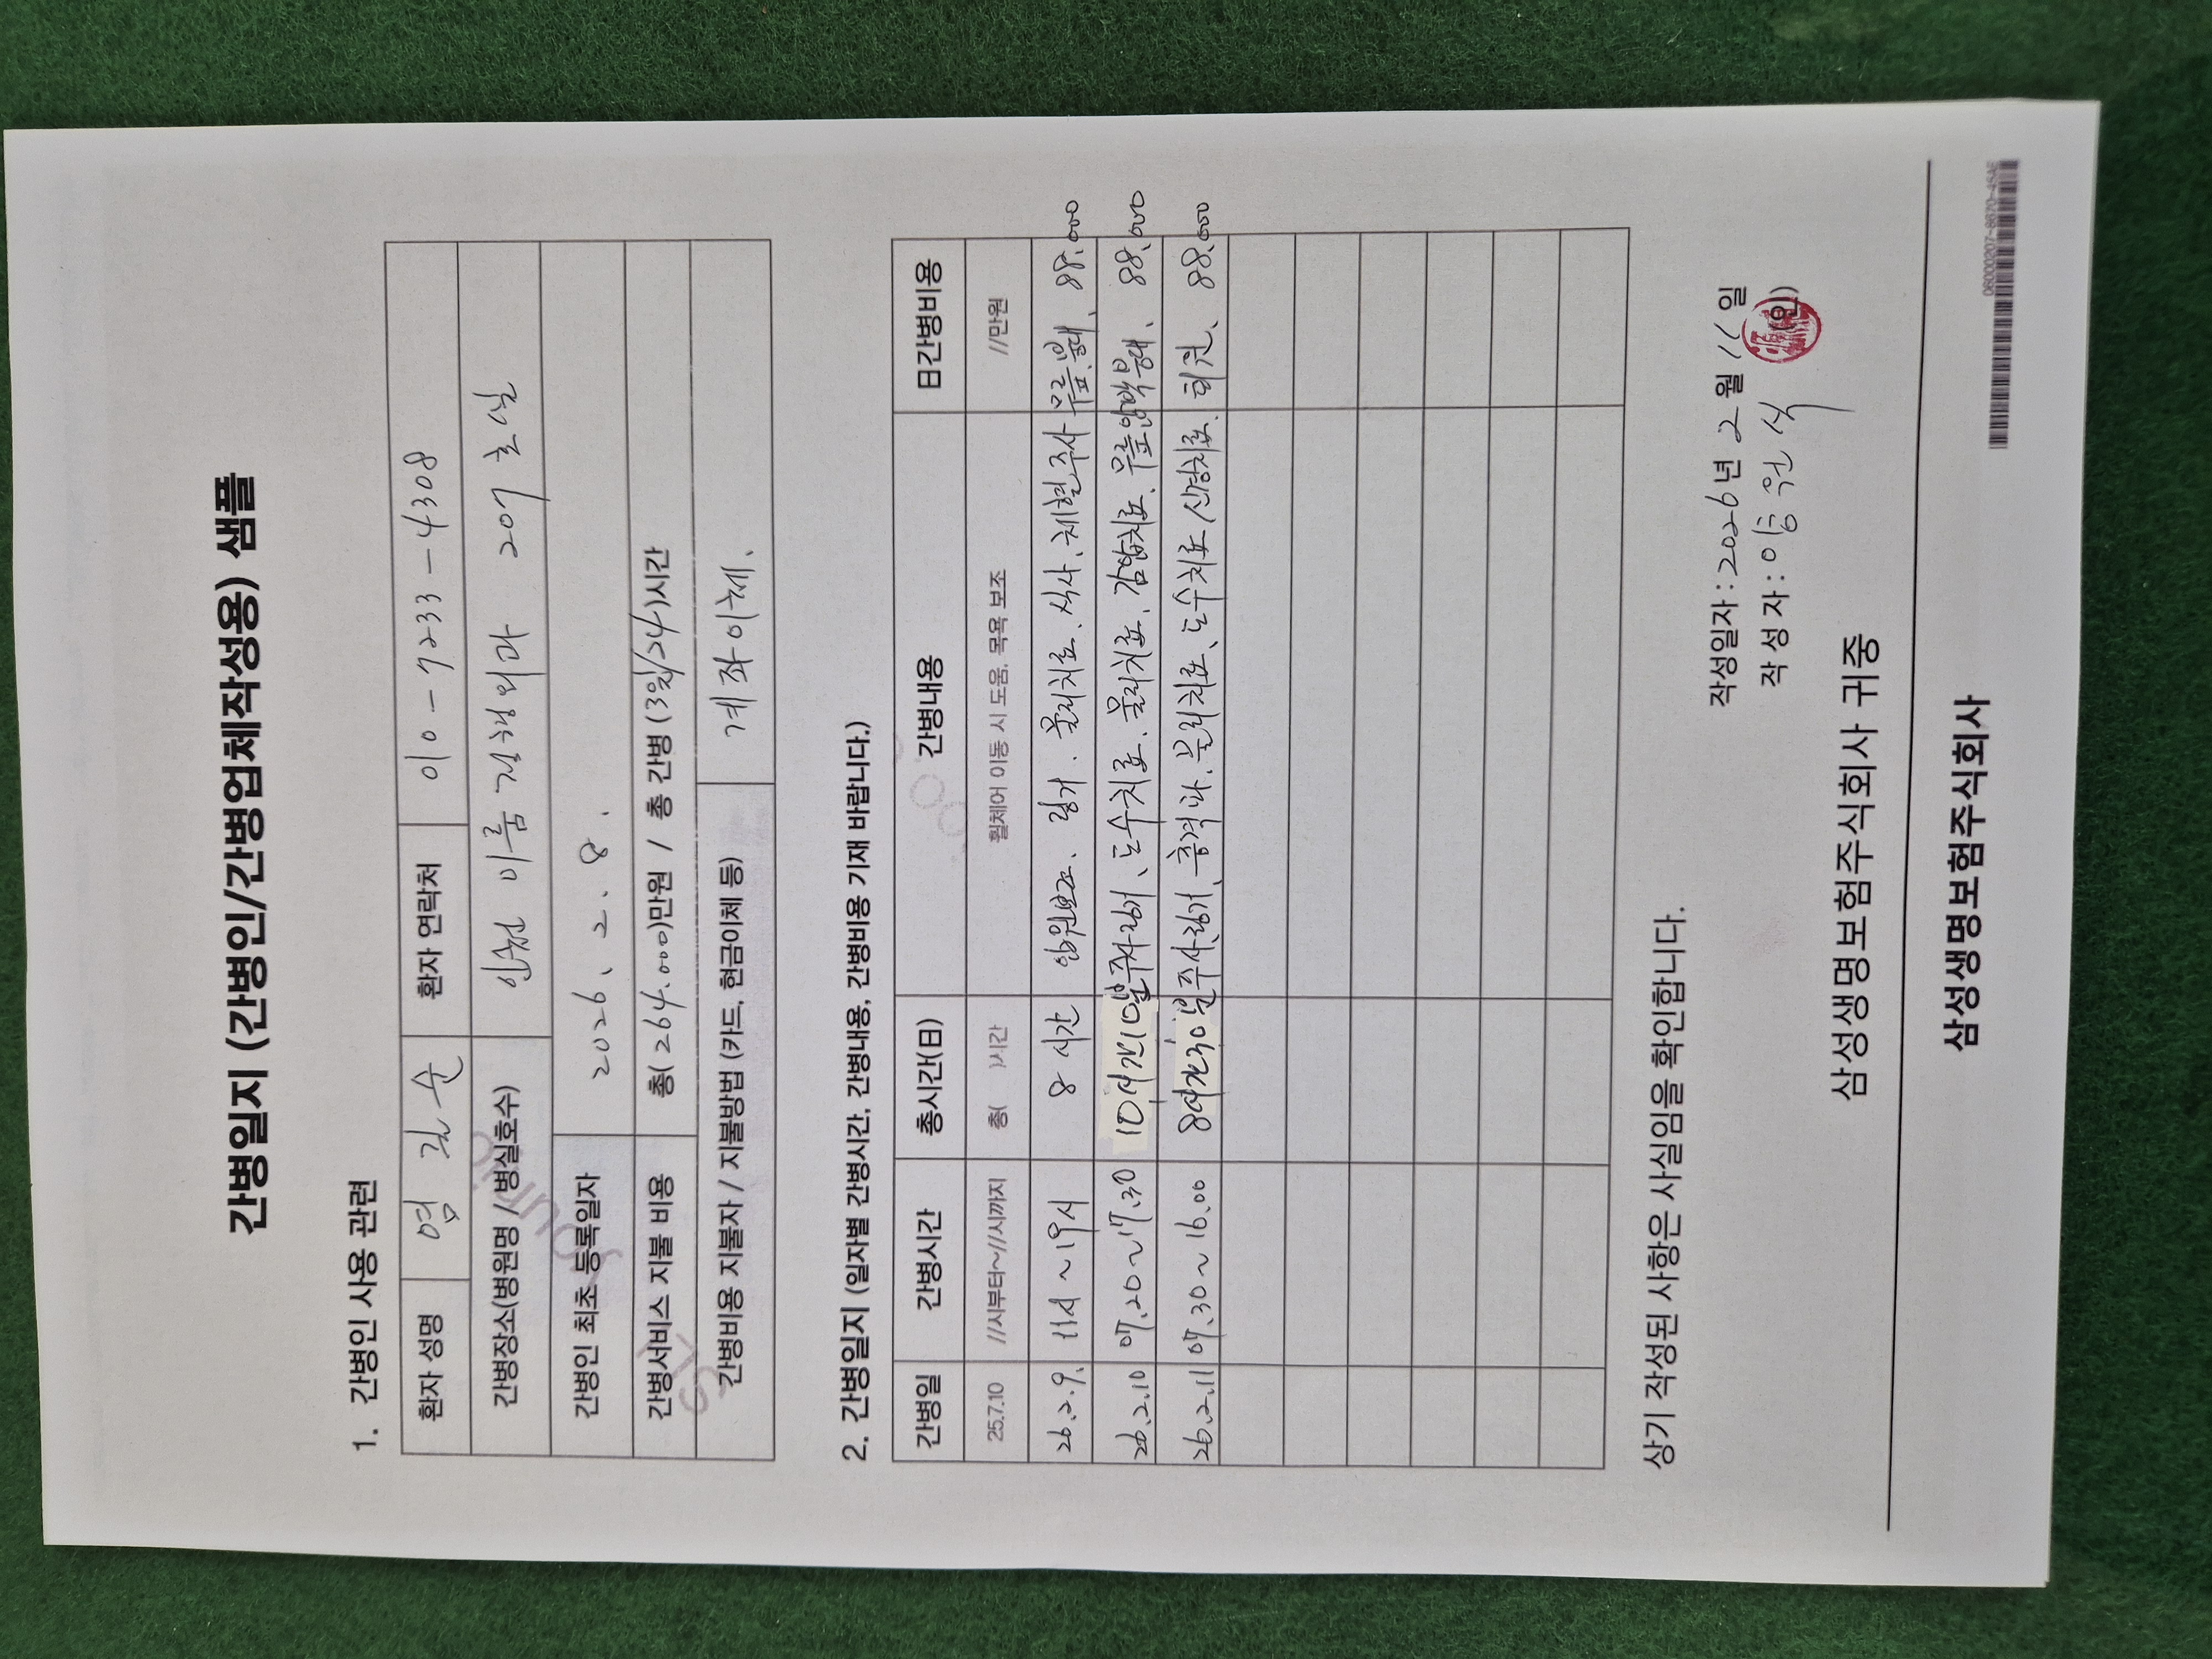 간병일지 (간병인/간병업체작성용) 샘플
1. 간병인 사용 관련
환자 성명 염길순 환자 연락처 010-7233-4308
간병장소(병원명 / 병실호수) 인천 이룸 정형외과 207 호실
간병인 최초 등록일자 2026. 2. 8.
간병서비스 지불 비용 총( 264.000)만원 / 총 간병 (3일/24)시간
간병비용 지불자 / 지불방법 (카드, 현금이체 등) 계좌이체.
2. 간병일지 (일자별 간병시간, 간병내용, 간병비용 기재 바랍니다.)
간병일 간병시간 총시간(日) 간병내용 日간병비용
25.7.10 //시부터~//시까지 총( )시간 휠체어 이동 시 도움, 목욕 보조 //만원
26.2.9. 11시~19시 8 시간 링거. 물리치료. 식사. 채혈. 주사 무릎. 붕대. 88.000
26.2.10 07.20~17.30 10시간10분 주사. 링거. 도수치료. 물리치료. 감압치료. 무릎 붕대. 88.000
26.2.11 07.30~16.00 8시간30분 주사. 링거. 충격파. 물리치료. 도수치료. 신경치료. 퇴원. 88.000
상기 작성된 사항은 사실임을 확인합니다.
작성일자 : 2026년 2월 11일
작 성 자 : 이응원 (인)
삼성생명보험주식회사 귀중
삼성생명보험주식회사